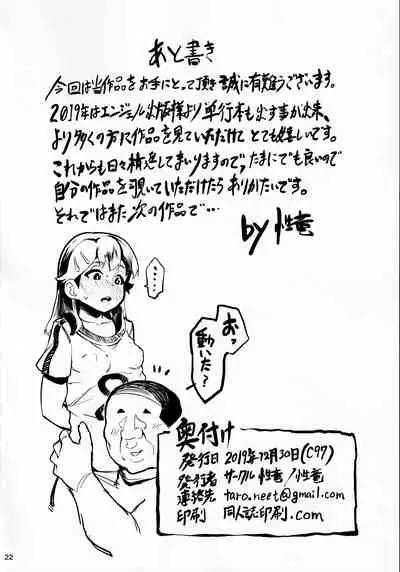 あと書き
今回は当作品をお手にとって頂き誠に有難うございます。
2019年はエンジェル出版様より単行本も出す事が出来、
より多くの方に作品を見ていただけて とても嬉しいです。
これからも日々精進してまいりますので、たまにでも良いので
自分の作品を覗いていただけたら ありがたいです。
それではまた次の作品で…
by 性竜
……
おっ
動いた?
奥付け
発行日 2019年12月30日(C97)
発行者 サークル性竜/性竜
連絡先 taro.neet@gmail.com
印刷 同人誌印刷.com
22